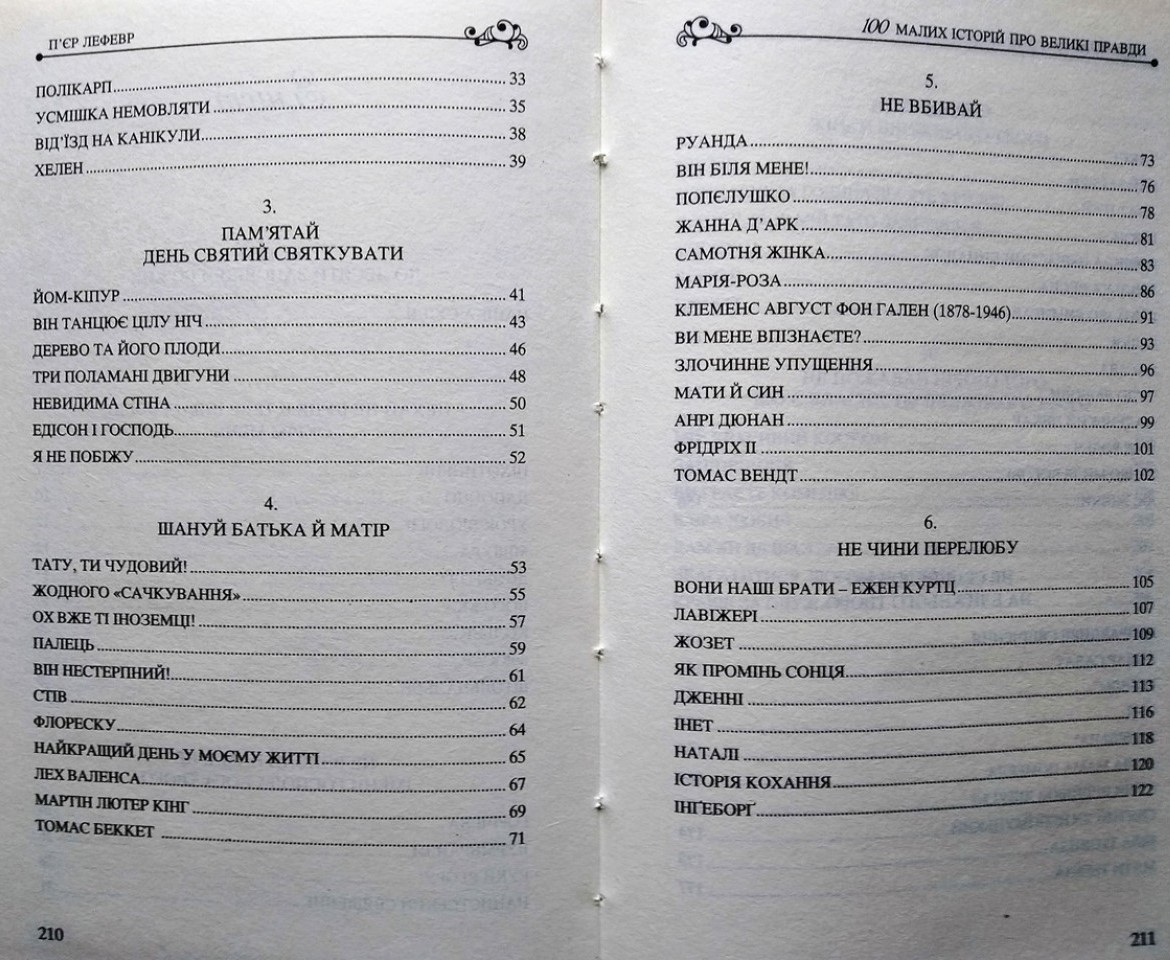 П'ЄР ЛЕФЕВР
ПОЛІКАРП 33
УСМІШКА НЕМОВЛЯТИ 35
ВІД'ЇЗД НА КАНІКУЛИ 38
ХЕЛЕН 39
3.
ПАМ'ЯТАЙ
ДЕНЬ СВЯТИЙ СВЯТКУВАТИ
ЙОМ-КІПУР 41
ВІН ТАНЦЮЄ ЦІЛУ НІЧ 43
ДЕРЕВО ТА ЙОГО ПЛОДИ 46
ТРИ ПОЛАМАНІ ДВИГУНИ 48
НЕВИДИМА СТІНА 50
ЕДІСОН І ГОСПОДЬ 51
Я НЕ ПОБІЖУ 52
4.
ШАНУЙ БАТЬКА Й МАТІР
ТАТУ, ТИ ЧУДОВИЙ! 53
ЖОДНОГО «САЧКУВАННЯ» 55
ОХ ВЖЕ ТІ ІНОЗЕМЦІ! 57
ПАЛЕЦЬ 59
ВІН НЕСТЕРПНИЙ! 61
СТІВ 62
ФЛОРЕСКУ 64
НАЙКРАЩИЙ ДЕНЬ У МОЄМУ ЖИТТІ 65
ЛЕХ ВАЛЕНСА 67
МАРТІН ЛЮТЕР КІНГ 69
ТОМАС БЕККЕТ 71
210
100 МАЛИХ ІСТОРІЙ ПРО ВЕЛИКІ ПРАВДИ
5.
НЕ ВБИВАЙ
РУАНДА 73
ВІН БІЛЯ МЕНЕ! 76
ПОПЄЛУШКО 78
ЖАННА Д'АРК 81
САМОТНЯ ЖІНКА 83
МАРІЯ-РОЗА 86
КЛЕМЕНС АВГУСТ ФОН ГАЛЕН (1878-1946) 91
ВИ МЕНЕ ВПІЗНАЄТЕ? 93
ЗЛОЧИННЕ УПУЩЕННЯ 96
МАТИ Й СИН 97
АНРІ ДЮНАН 99
ФРІДРІХ ІІ 101
ТОМАС ВЕНДТ 102
6.
НЕ ЧИНИ ПЕРЕЛЮБУ
ВОНИ НАШІ БРАТИ – ЕЖЕН КУРТЦ 105
ЛАВІЖЕРІ 107
ЖОЗЕТ 109
ЯК ПРОМІНЬ СОНЦЯ 112
ДЖЕННІ 113
ІНЕТ 116
НАТАЛІ 118
ІСТОРІЯ КОХАННЯ 120
ІНҐЕБОРҐ 122
211